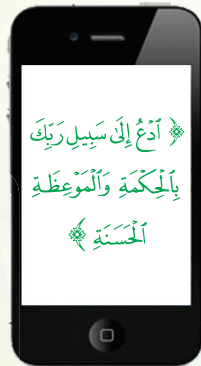 ﴿ ٱدۡعُ إِلَىٰ سَبِيلِ رَبِّكَ
بِٱلۡحِكۡمَةِ وَٱلۡمَوۡعِظَةِ
ٱلۡحَسَنَةِ ﴾